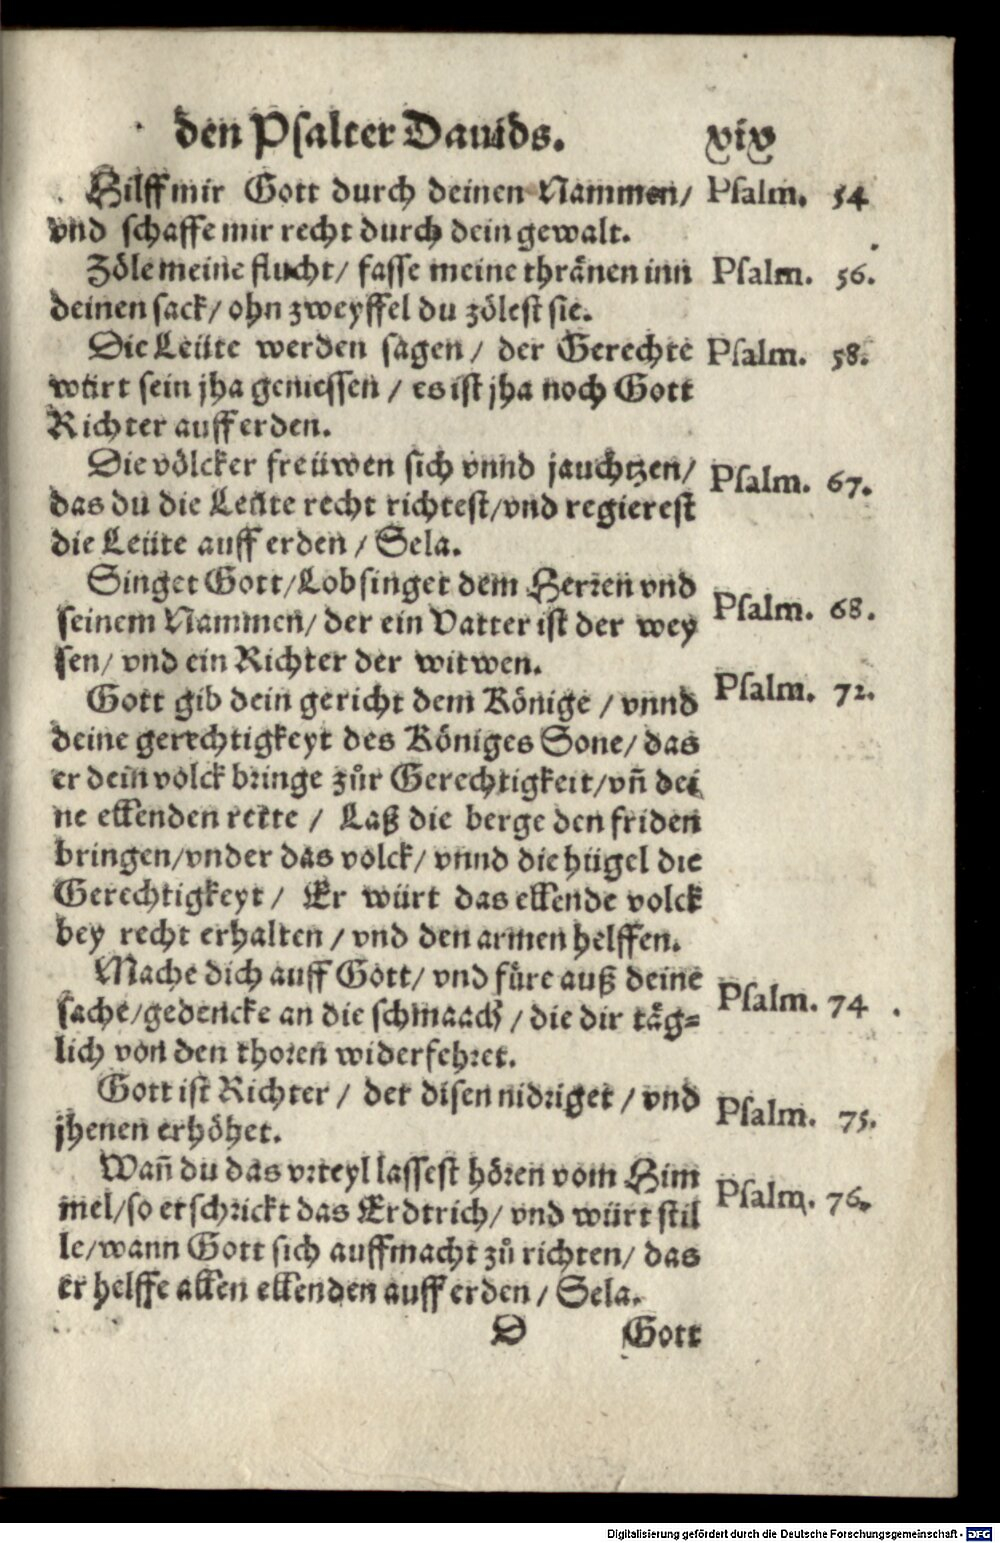 den Psalter Dauids. xix
Hilff mir Gott durch deinen Nammen/ Psalm. 54
vnd schaffe mir recht durch dein gewalt.
Zöle meine flucht/ fasse meine thränen inn Psalm. 56.
deinen sack/ ohn zweyffel du zölest sie.
Die Leüte werden sagen/ der Gerechte Psalm. 58.
würt sein jha geniessen/ es ist jha noch Gott
Richter auff erden.
Die völcker freüwen sich vnnd jauchtzen/ Psalm. 67.
das du die Leüte recht richtest/vnd regierest
die Leüte auff erden/ Sela.
Singet Gott/Lobsinget dem Herren vnd Psalm. 68.
seinem Nammen/ der ein Vatter ist der wey
sen/ vnd ein Richter der witwen.
Gott gib dein gericht dem Könige/ vnnd Psalm. 72.
deine gerechtigkeyt des Königes Sone/ das
er dein volck bringe zůr Gerechtigkeit/vñ dei
ne ellenden rette/ Laß die berge den friden
bringen/vnder das volck/ vnnd die hügel die
Gerechtigkeyt/ Er würt das ellende volck
bey recht erhalten/ vnd den armen helffen.
Mache dich auff Gott/ vnd füre auß deine
sache/gedencke an die schmaach/ die dir täg= Psalm. 74
lich von den thoren widerfehret.
Gott ist Richter/ der disen nidriget/ vnd Psalm. 75.
jhenen erhöhet.
Wañ du das vrteyl lassest hören vom Him Psalm. 76.
mel/so erschrickt das Erdtrich/ vnd würt stil
le/wann Gott sich auffmacht zů richten/ das
er helffe allen ellenden auff erden/ Sela.
D Gott
Digitalisierung gefördert durch die Deutsche Forschungsgemeinschaft - DFG